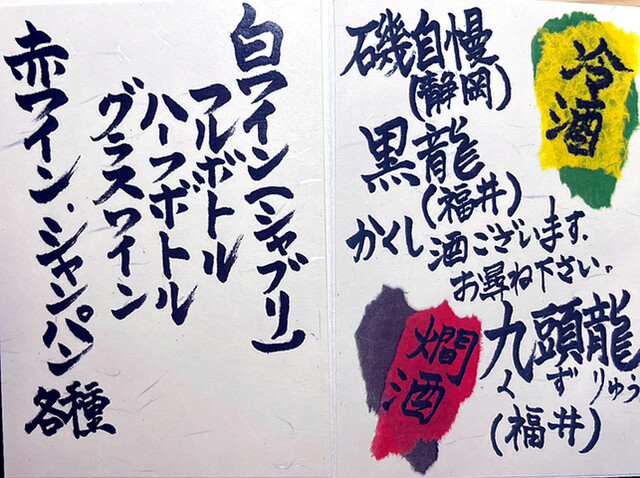 冷酒
磯自慢
(静岡)
黒龍
(福井)
かくし酒ございます.
お尋ね下さい。
燗酒
九頭龍
くずりゅう
(福井)
白ワイン(シャブリ)
フルボトル
ハーフボトル
グラスワイン
赤ワイン.シャンパン
各種